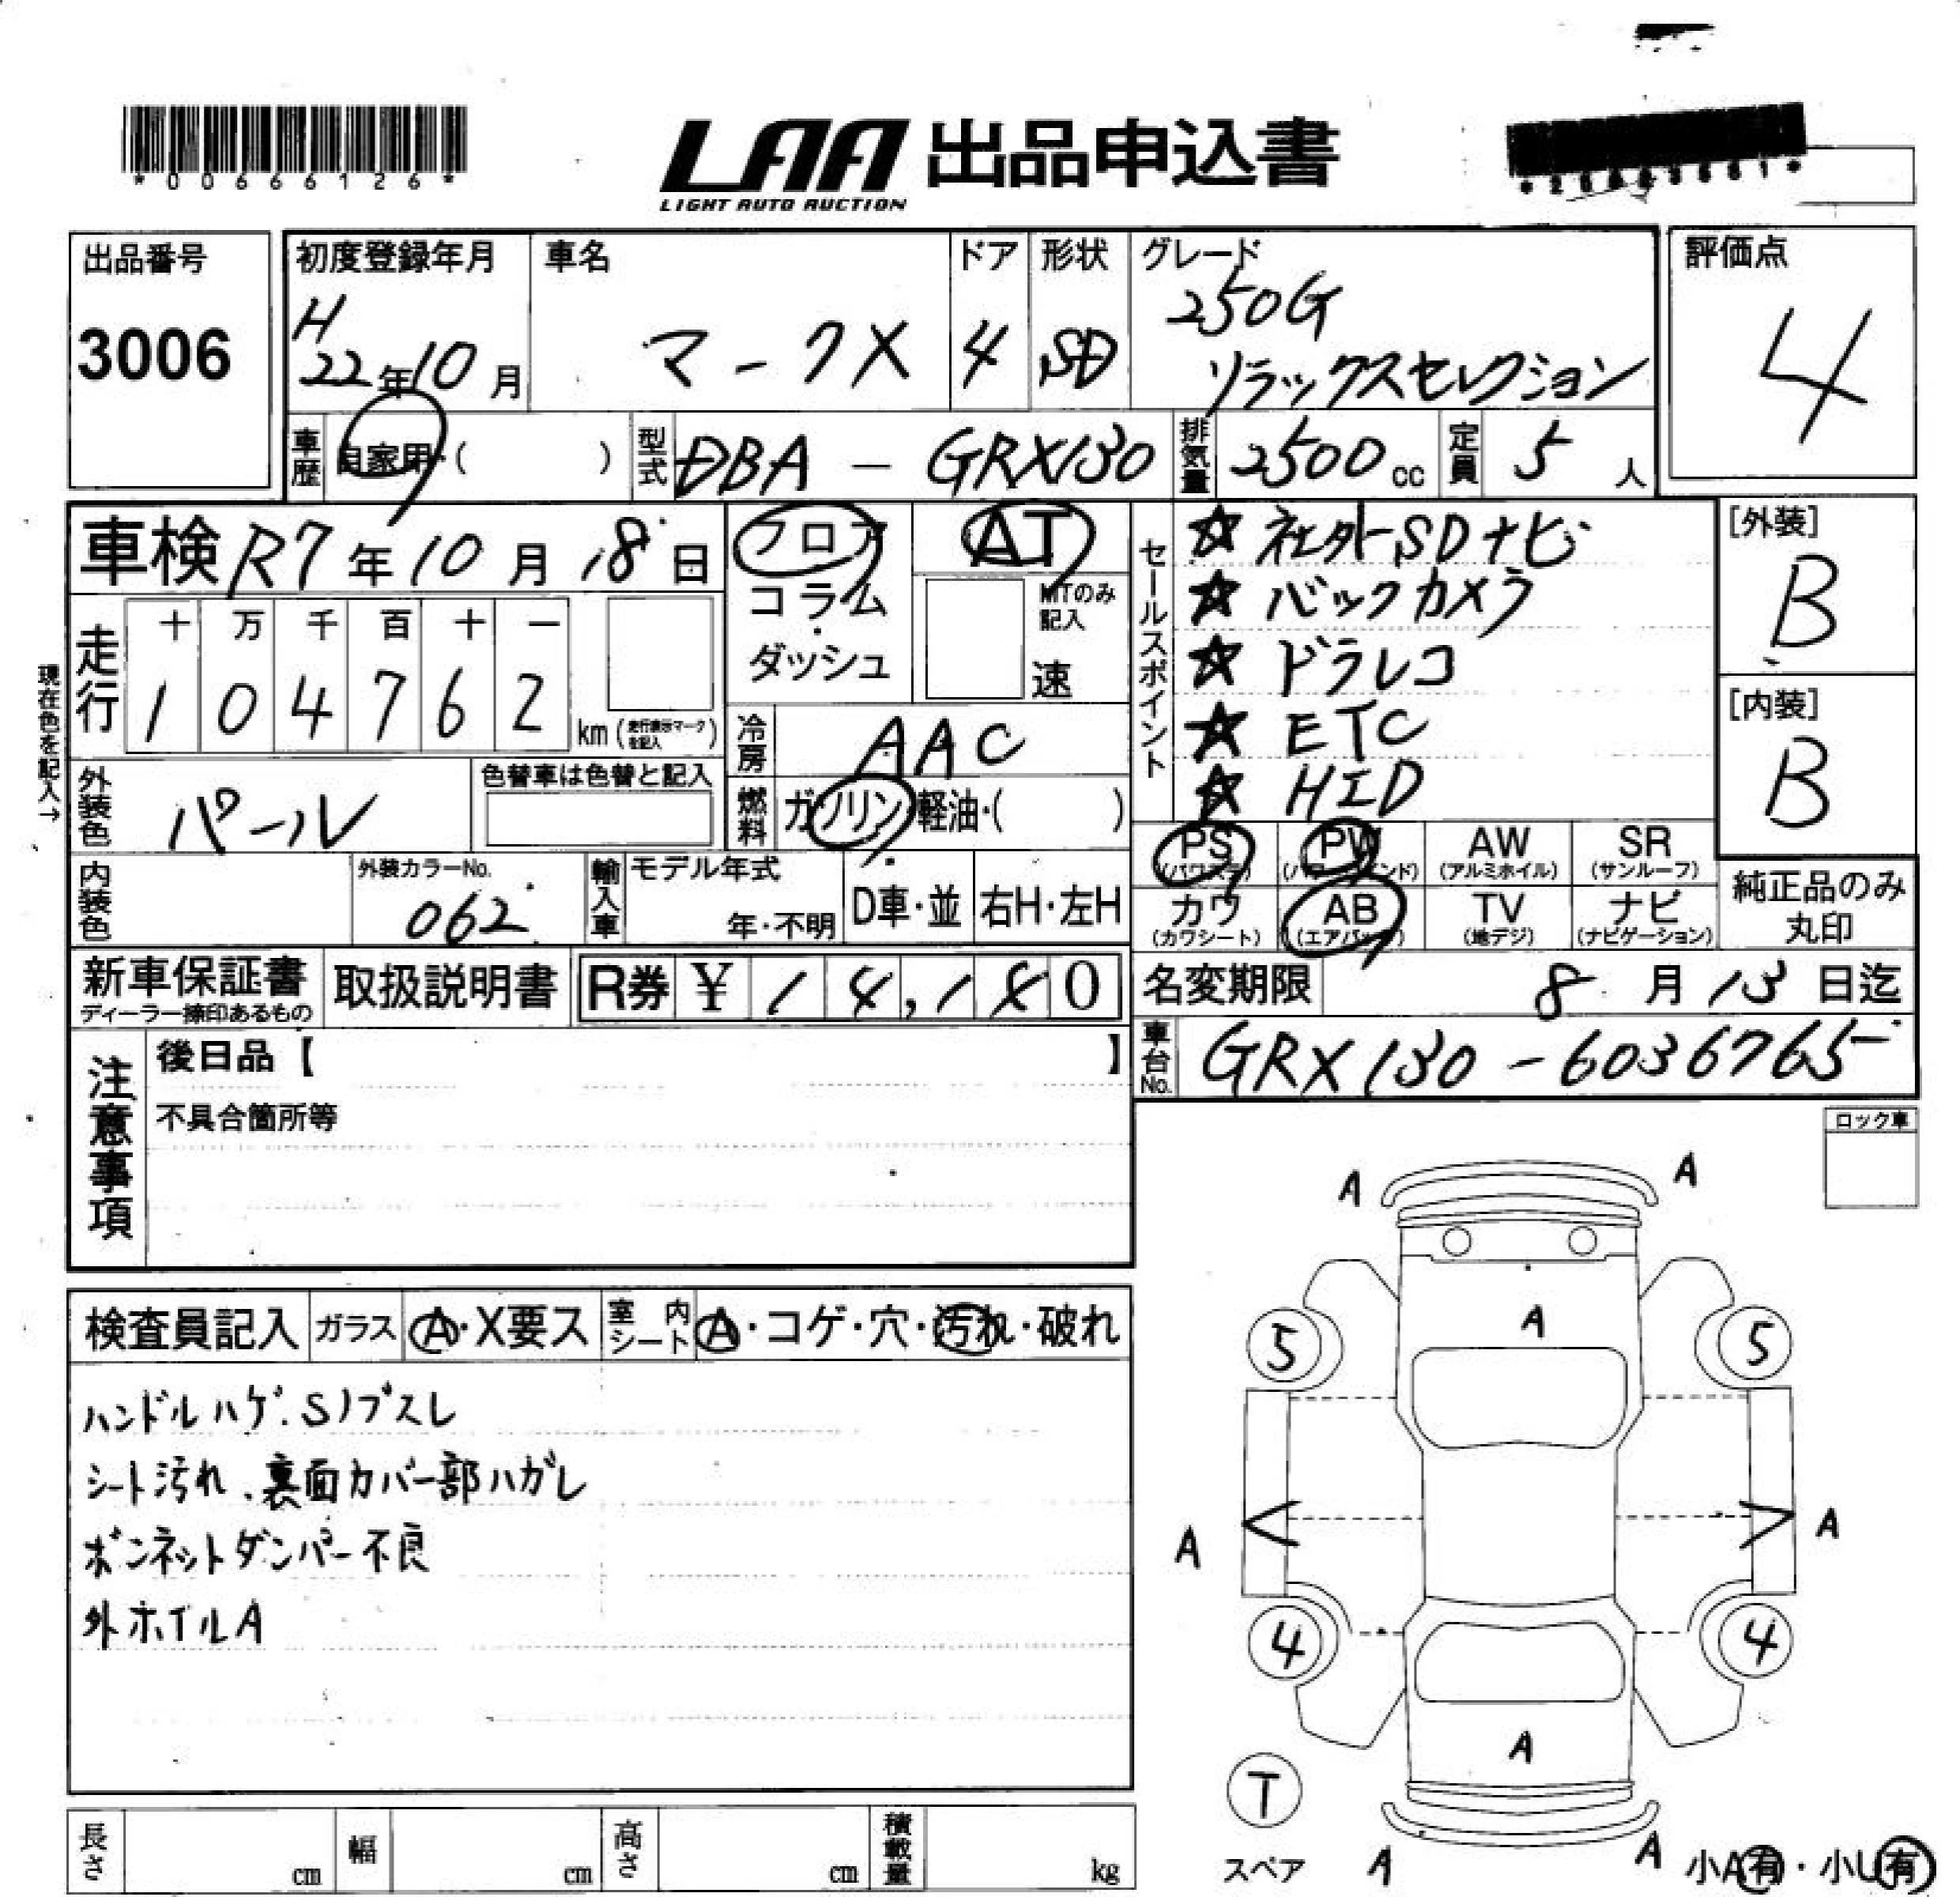 *00666126*
LAA 出品申込書
LIGHT AUTO AUCTION
出品番号
3006
初度登録年月
H
22年10月
車名
マークX
ドア
4
形状
SD
グレード
250G
リラックスセレクション
評価点
4
車歴
自家用・( )
型式
DBA - GRX130
排気量
2500cc
定員
5人
車検 R7年10月18日
フロア
コラム
・
ダッシュ
AT
MTのみ記入
速
セールスポイント
☆ 社外SDナビ
☆ バックカメラ
☆ ドラレコ
☆ ETC
☆ HID
[外装]
B
[内装]
B
現在色を記入→
走行
十 万 千 百 十 一
1 0 4 7 6 2
km(走行表示マークを記入)
冷房
AAC
外装色
パール
色替車は色替と記入
燃料
ガソリン・軽油・( )
PS
(パワステ)
PW
(パワーウインド)
AW
(アルミホイル)
SR
(サンルーフ)
カワ
(カワシート)
AB
(エアバッグ)
TV
(地デジ)
ナビ
(ナビゲーション)
純正品のみ
丸印
内装色
外装カラーNo.
062
輸入車
モデル年式
年・不明
D車・並
右H・左H
新車保証書
ディーラー捺印あるもの
取扱説明書
R券 ¥
0
名変期限
8月13日迄
車台No.
GRX130-6036765
注意事項
後日品【 】
不具合箇所等
ロック車
検査員記入
ガラス
A・X要ス
室内シート
A・コゲ・穴・汚れ・破れ
ハンドルハゲ.Sノブスレ
シート汚れ、裏面カバー部ハガレ
ボンネットダンパー不良
外ホイルA
A
A
A
5
5
A
A
4
4
A
T
スペア
A
A
小A有・小U有
長さ
cm
幅
cm
高さ
cm
積載量
kg